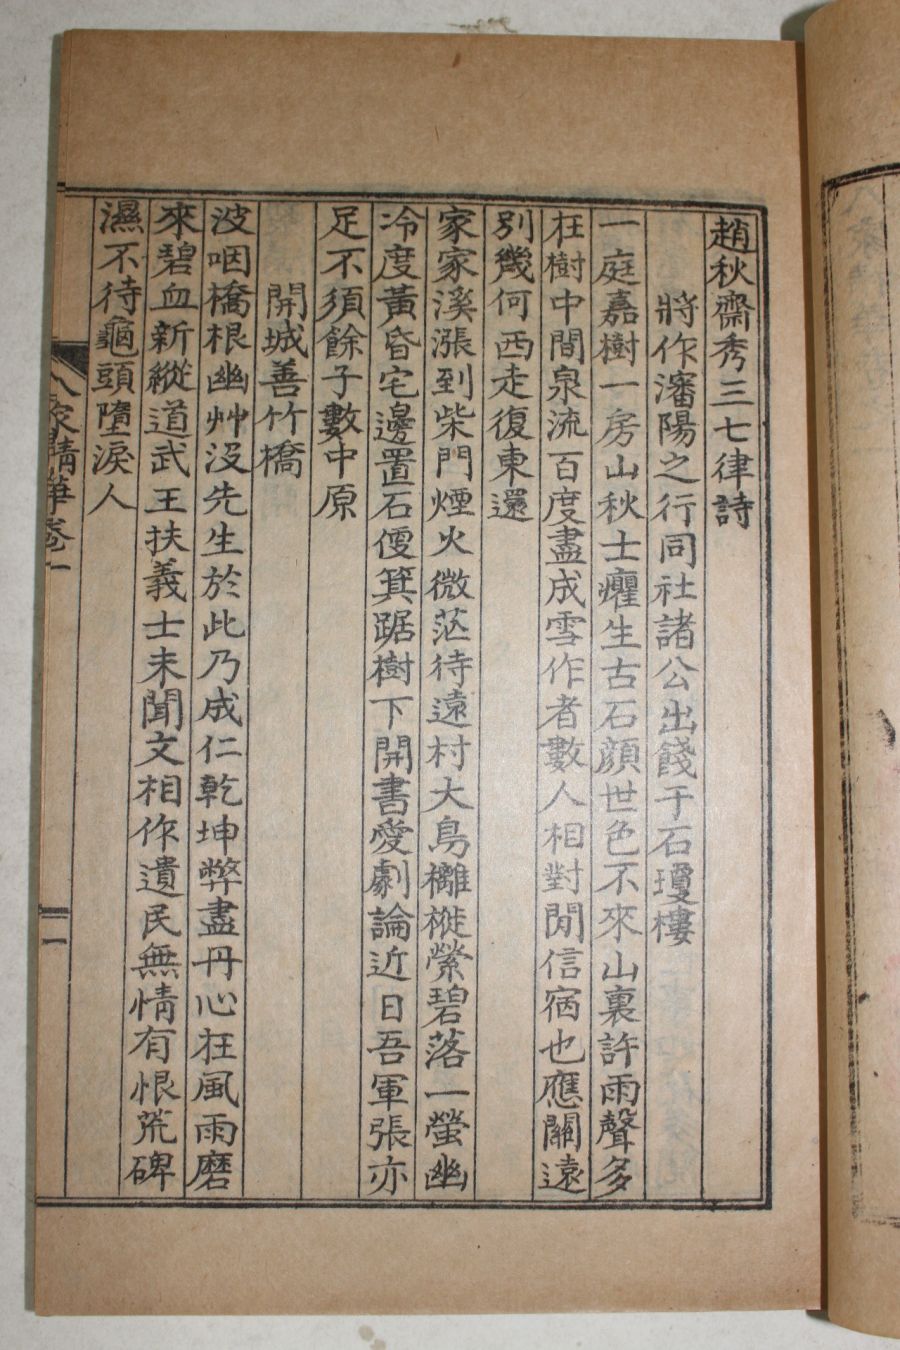 趙秋齋秀三七律詩
將作瀋陽之行同社諸公出餞于石瓊樓
一庭嘉樹一房山秋士癯生古石顔世色不來山裏許雨聲多
在樹中間泉流百度盡成雪作者數人相對閒信宿也應關遠
別幾何西走復東還
家家溪漲到柴門煙火微茫待遠村大鳥襳褷縈碧落一螢幽
冷度黃昏宅邊置石偃箕踞樹下開書愛劇論近日吾軍張亦
足不須餘子數中原
開城善竹橋
波咽橋根幽艸沒先生於此乃成仁乾坤弊盡丹心在風雨磨
來碧血新縱道武王扶義士未聞文相作遺民無情有恨荒碑
濕不待龜頭墮淚人
八家精華卷一
一